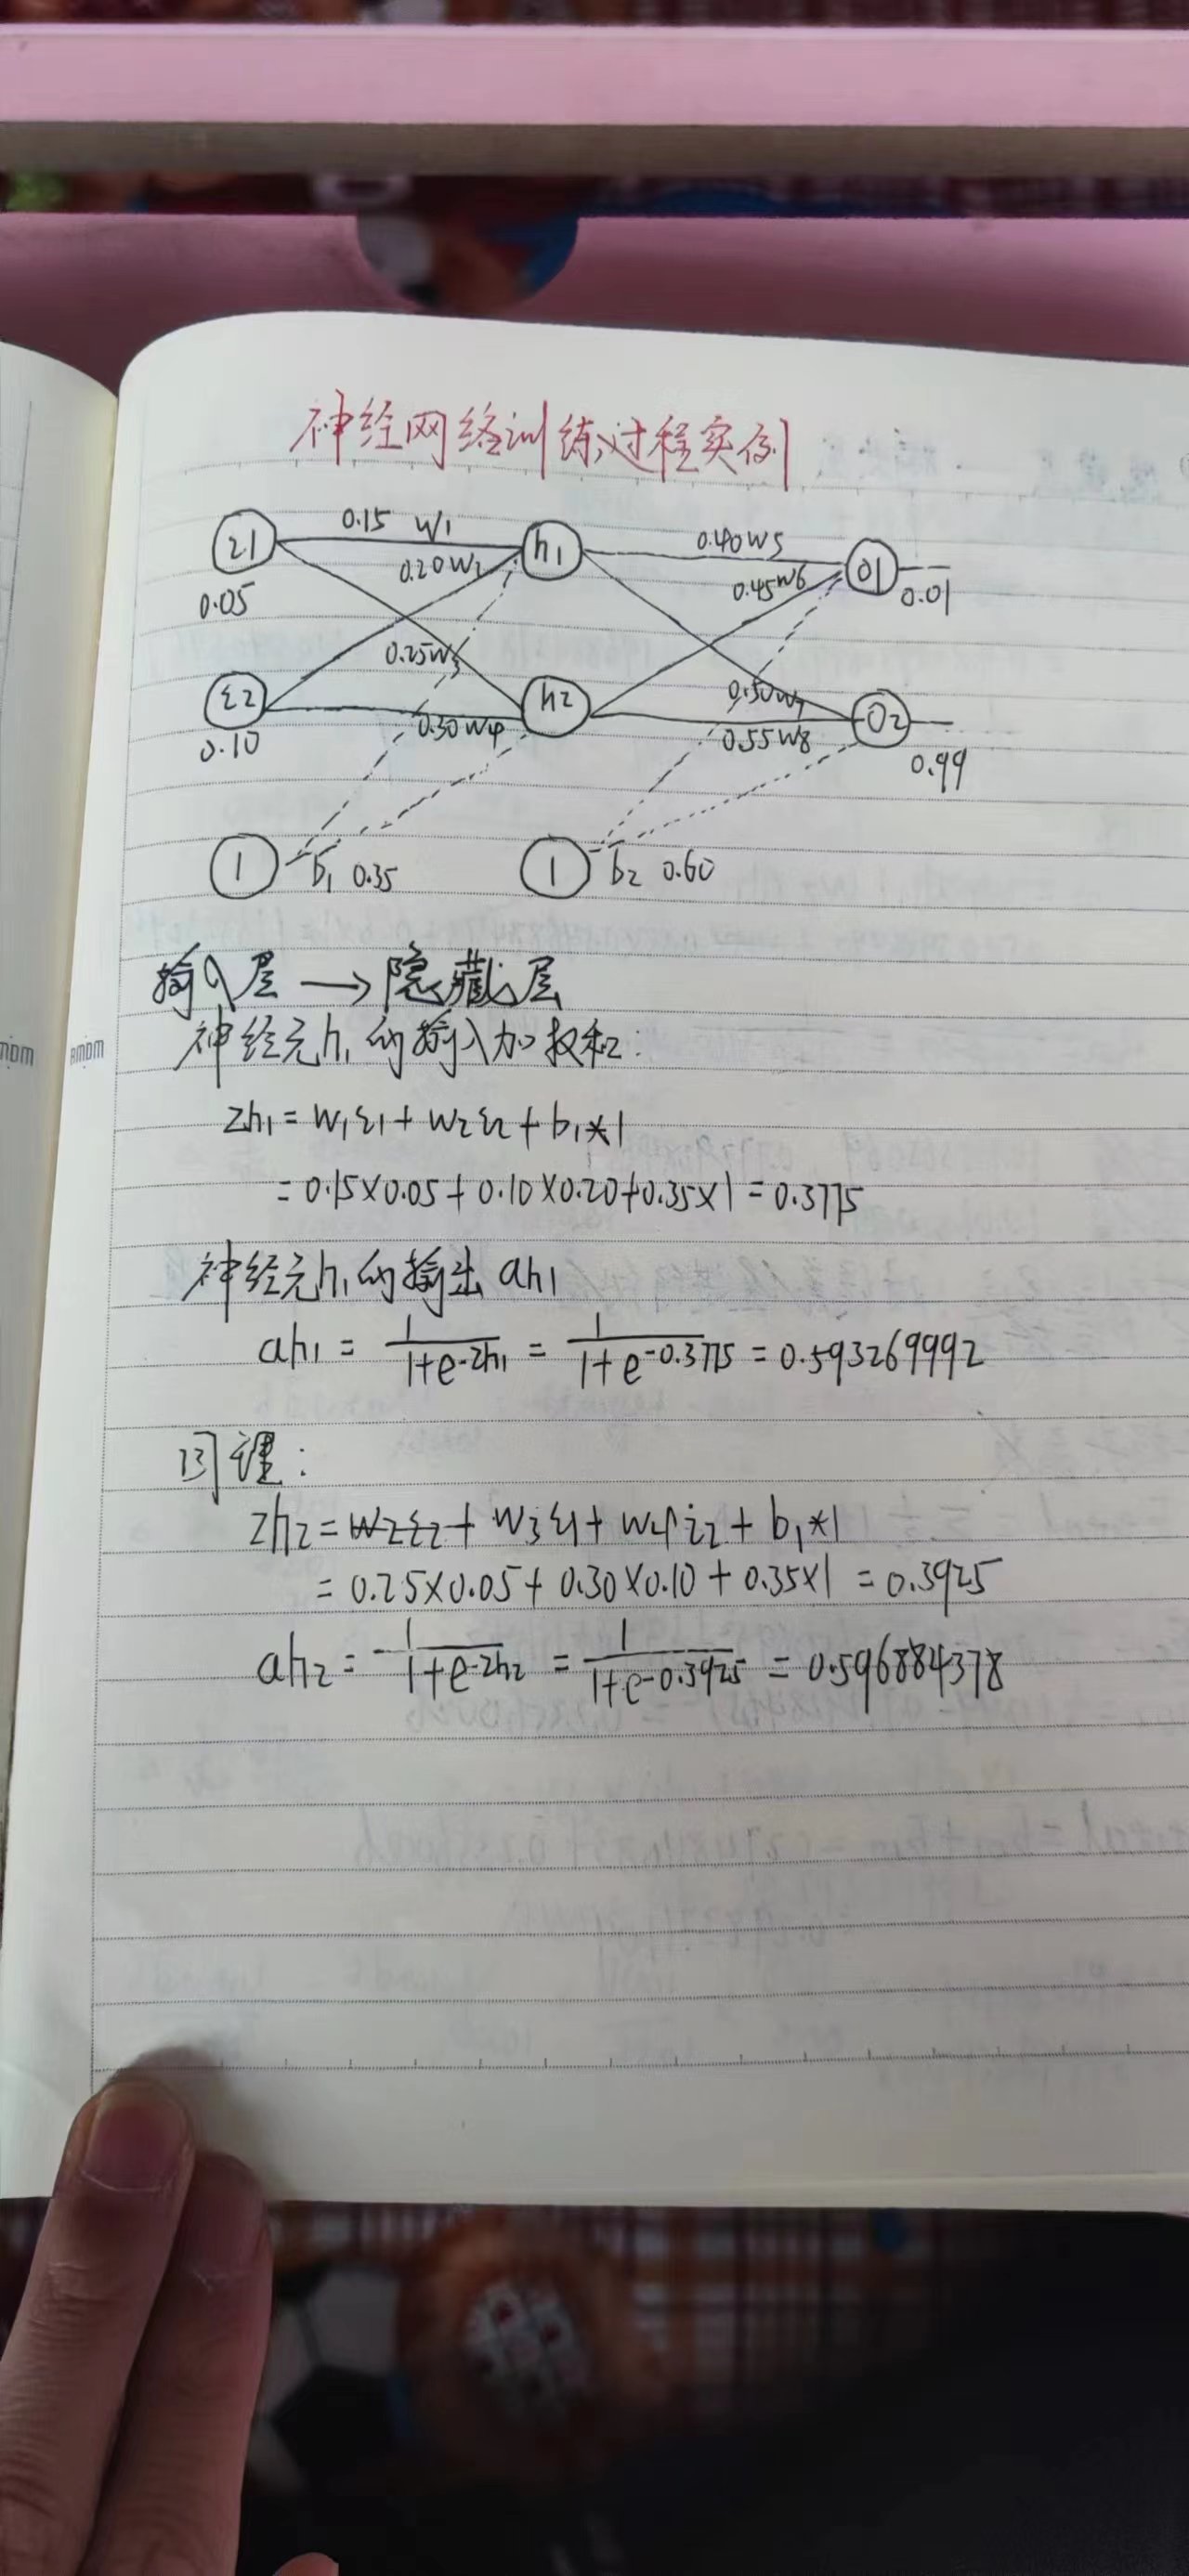 神经网络训练过程实例
i1 0.15 w1 h1 0.40 w5 o1
0.20 w2 0.45 w6
0.05 0.01
0.25 w3
i2 h2 0.50 w7 o2
0.10 0.30 w4 0.55 w8 0.99
1 b1 0.35 1 b2 0.60
输入层 → 隐藏层
神经元h1的输入加权和:
zh1 = w1i1 + w2i2 + b1*1
= 0.15×0.05 + 0.10×0.20 + 0.35×1 = 0.3775
神经元h1的输出ah1
ah1 = 1/(1+e^-zh1) = 1/(1+e^-0.3775) = 0.593269992
同理:
zh2 = w2i2 + w3i1 + w4i2 + b1*1
= 0.25×0.05 + 0.30×0.10 + 0.35×1 = 0.3925
ah2 = 1/(1+e^-zh2) = 1/(1+e^-0.3925) = 0.596884378
BMDM